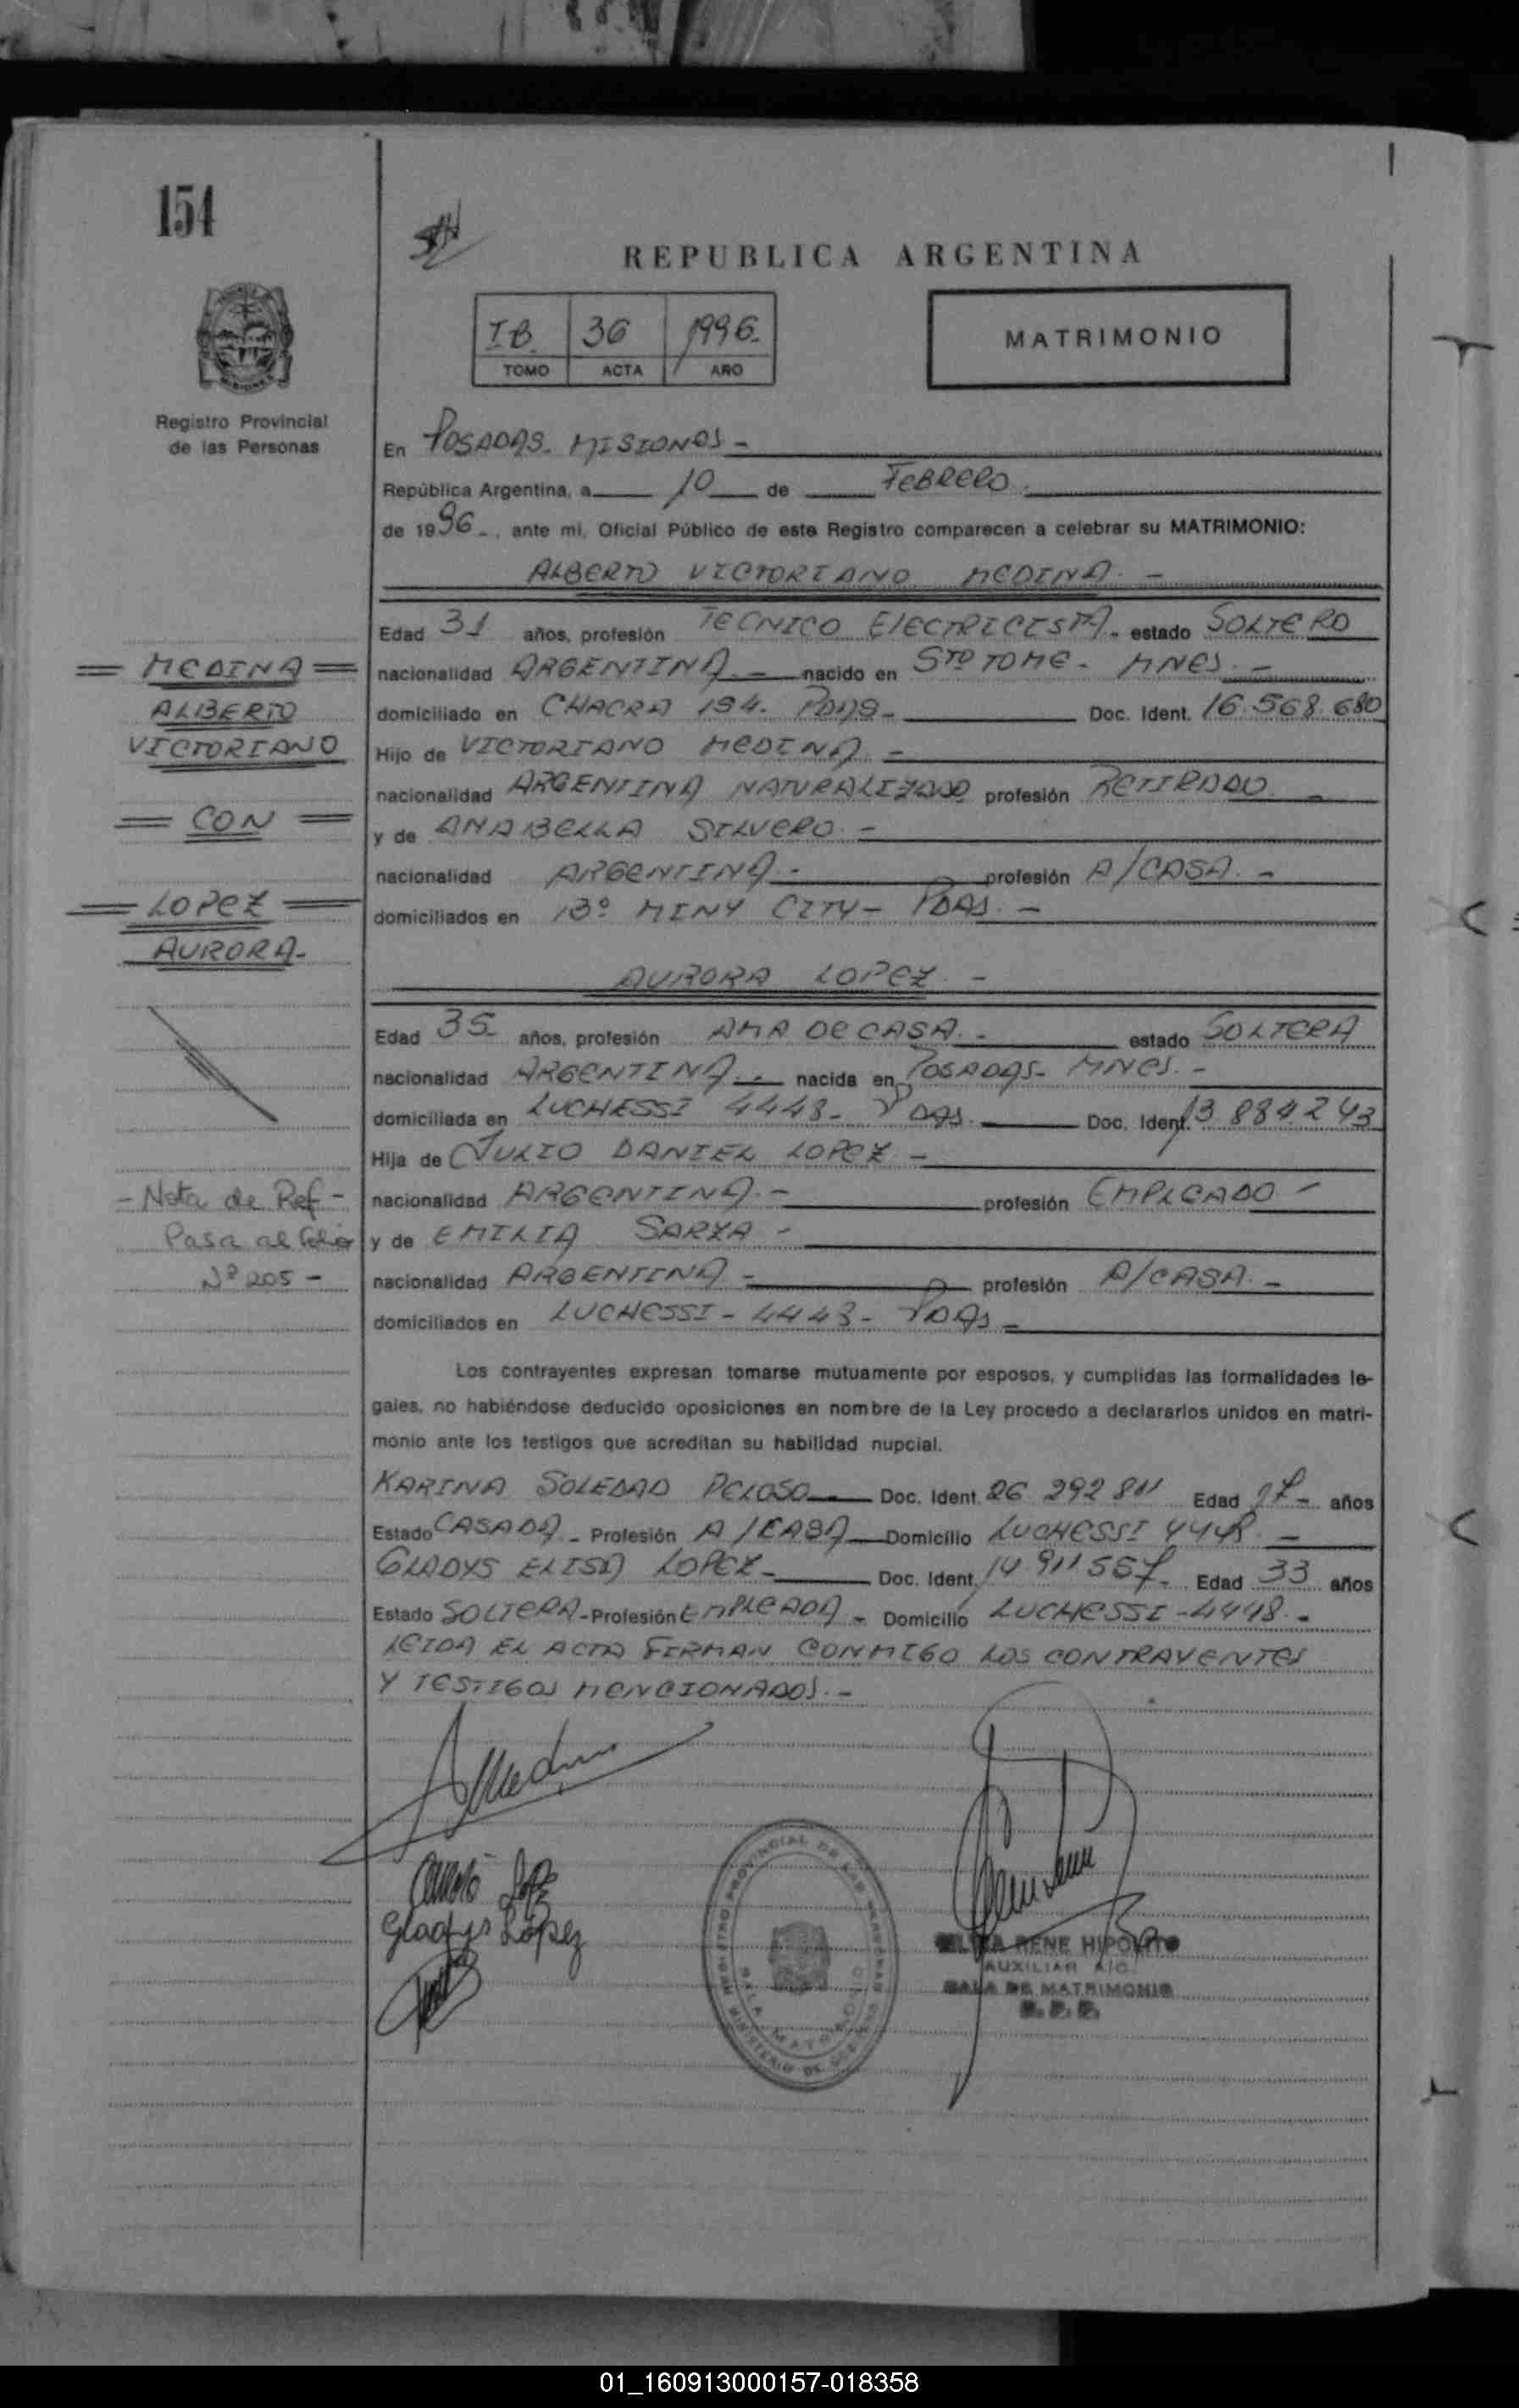 154
REPUBLICA ARGENTINA
IB. 36 1996.
TOMO ACTA AÑO
MATRIMONIO
Registro Provincial
de las Personas
En POSADAS. MISIONES -
República Argentina, a 10 de FEBRERO.
de 1996 -, ante mi, Oficial Público de este Registro comparecen a celebrar su MATRIMONIO:
ALBERTO VICTORIANO MEDINA. -
Edad 31 años, profesión TECNICO ELECTRICISTA. estado SOLTERO
= MEDINA =
nacionalidad ARGENTINA. - nacido en STO TOME - MNES. -
ALBERTO
domiciliado en CHACRA 194. PDAS - Doc. Ident. 16.568.680
VICTORIANO
Hijo de VICTORIANO MEDINA. -
nacionalidad ARGENTINA NATURALIZADO profesión RETIRADO. -
= CON =
y de ANABELLA SILVERO. -
nacionalidad ARGENTINA - profesión A/CASA. -
= LOPEZ =
domiciliados en Bº MINY CITY - PDAS. -
AURORA -
AURORA LOPEZ. -
Edad 35 años, profesión AMA DE CASA. - estado SOLTERA
nacionalidad ARGENTINA. - nacida en POSADAS - MNES. -
domiciliada en LUCHESSI 4448 - PDAS. Doc. Ident. 13.884.243
Hija de JULIO DANIEL LOPEZ -
- Nota de Ref -
nacionalidad ARGENTINA. - profesión EMPLEADO -
Pasa al folio
y de EMILIA SARZA -
Nº 205 -
nacionalidad ARGENTINA - profesión A/CASA. -
domiciliados en LUCHESSI - 4448 - PDAS -
Los contrayentes expresan tomarse mutuamente por esposos, y cumplidas las formalidades le-
gales, no habiéndose deducido oposiciones en nombre de la Ley procedo a declararlos unidos en matri-
monio ante los testigos que acreditan su habilidad nupcial.
KARINA SOLEDAD PELOSO Doc. Ident. 26 292 811 Edad años
Estado CASADA - Profesión A/CASA Domicilio LUCHESSI 4448. -
GLADYS ELISA LOPEZ - Doc. Ident. 14 911 557 - Edad 33 años
Estado SOLTERA - Profesión EMPLEADA - Domicilio LUCHESSI - 4448. -
LEIDA EL ACTA FIRMAN CONMIGO LOS CONTRAYENTES
Y TESTIGOS MENCIONADOS. -
Gladys López
REGISTRO PROVINCIAL DE LAS PERSONAS
SALA MATRIMONIO
MINISTERIO DE GOBIERNO
RENE HIPOLITO
AUXILIAR A/C.
SALA DE MATRIMONIO
01_160913000157-018358